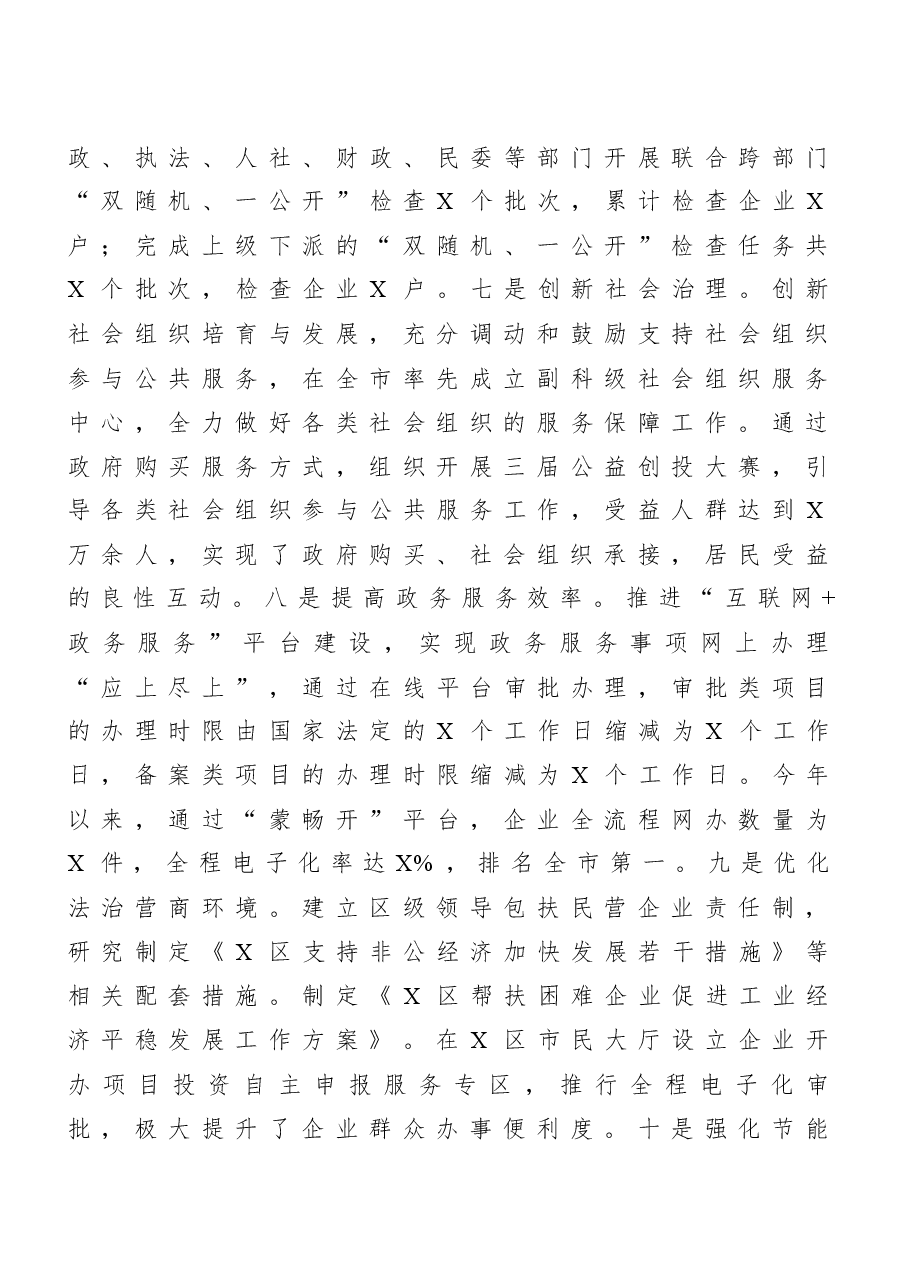 政、执法、人社、财政、民委等部门开展联合跨部门
“双随机、一公开”检查X个批次，累计检查企业X
户；完成上级下派的“双随机、一公开”检查任务共
X个批次，检查企业X户。七是创新社会治理。创新
社会组织培育与发展，充分调动和鼓励支持社会组织
参与公共服务，在全市率先成立副科级社会组织服务
中心，全力做好各类社会组织的服务保障工作。通过
政府购买服务方式，组织开展三届公益创投大赛，引
导各类社会组织参与公共服务工作，受益人群达到X
万余人，实现了政府购买、社会组织承接，居民受益
的良性互动。八是提高政务服务效率。推进“互联网+
政务服务”平台建设，实现政务服务事项网上办理
“应上尽上”，通过在线平台审批办理，审批类项目
的办理时限由国家法定的X个工作日缩减为X个工作
日，备案类项目的办理时限缩减为X个工作日。今年
以来，通过“蒙畅开”平台，企业全流程网办数量为
X件，全程电子化率达X%，排名全市第一。九是优化
法治营商环境。建立区级领导包扶民营企业责任制，
研究制定《X区支持非公经济加快发展若干措施》等
相关配套措施。制定《X区帮扶困难企业促进工业经
济平稳发展工作方案》。在X区市民大厅设立企业开
办项目投资自主申报服务专区，推行全程电子化审
批，极大提升了企业群众办事便利度。十是强化节能